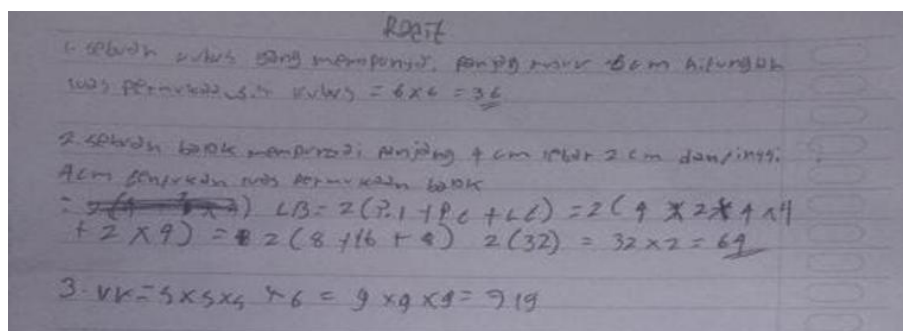 1. sebuah kubus yang mempunyai panjang rusuk 6cm hitunglah
luas permukaan kubus = 6x6 = 36
2. sebuah balok mempunyai panjang 4 cm lebar 2 cm dan tinggi
4cm tentukan luas permukaan balok
= LB = 2(P.l + P.t + l.t) = 2(4 x 2 + 4 x 4
+ 2 x 4) = 2(8 + 16 + 8) 2(32) = 32 x 2 = 64
= 9 x 9 x 9 =